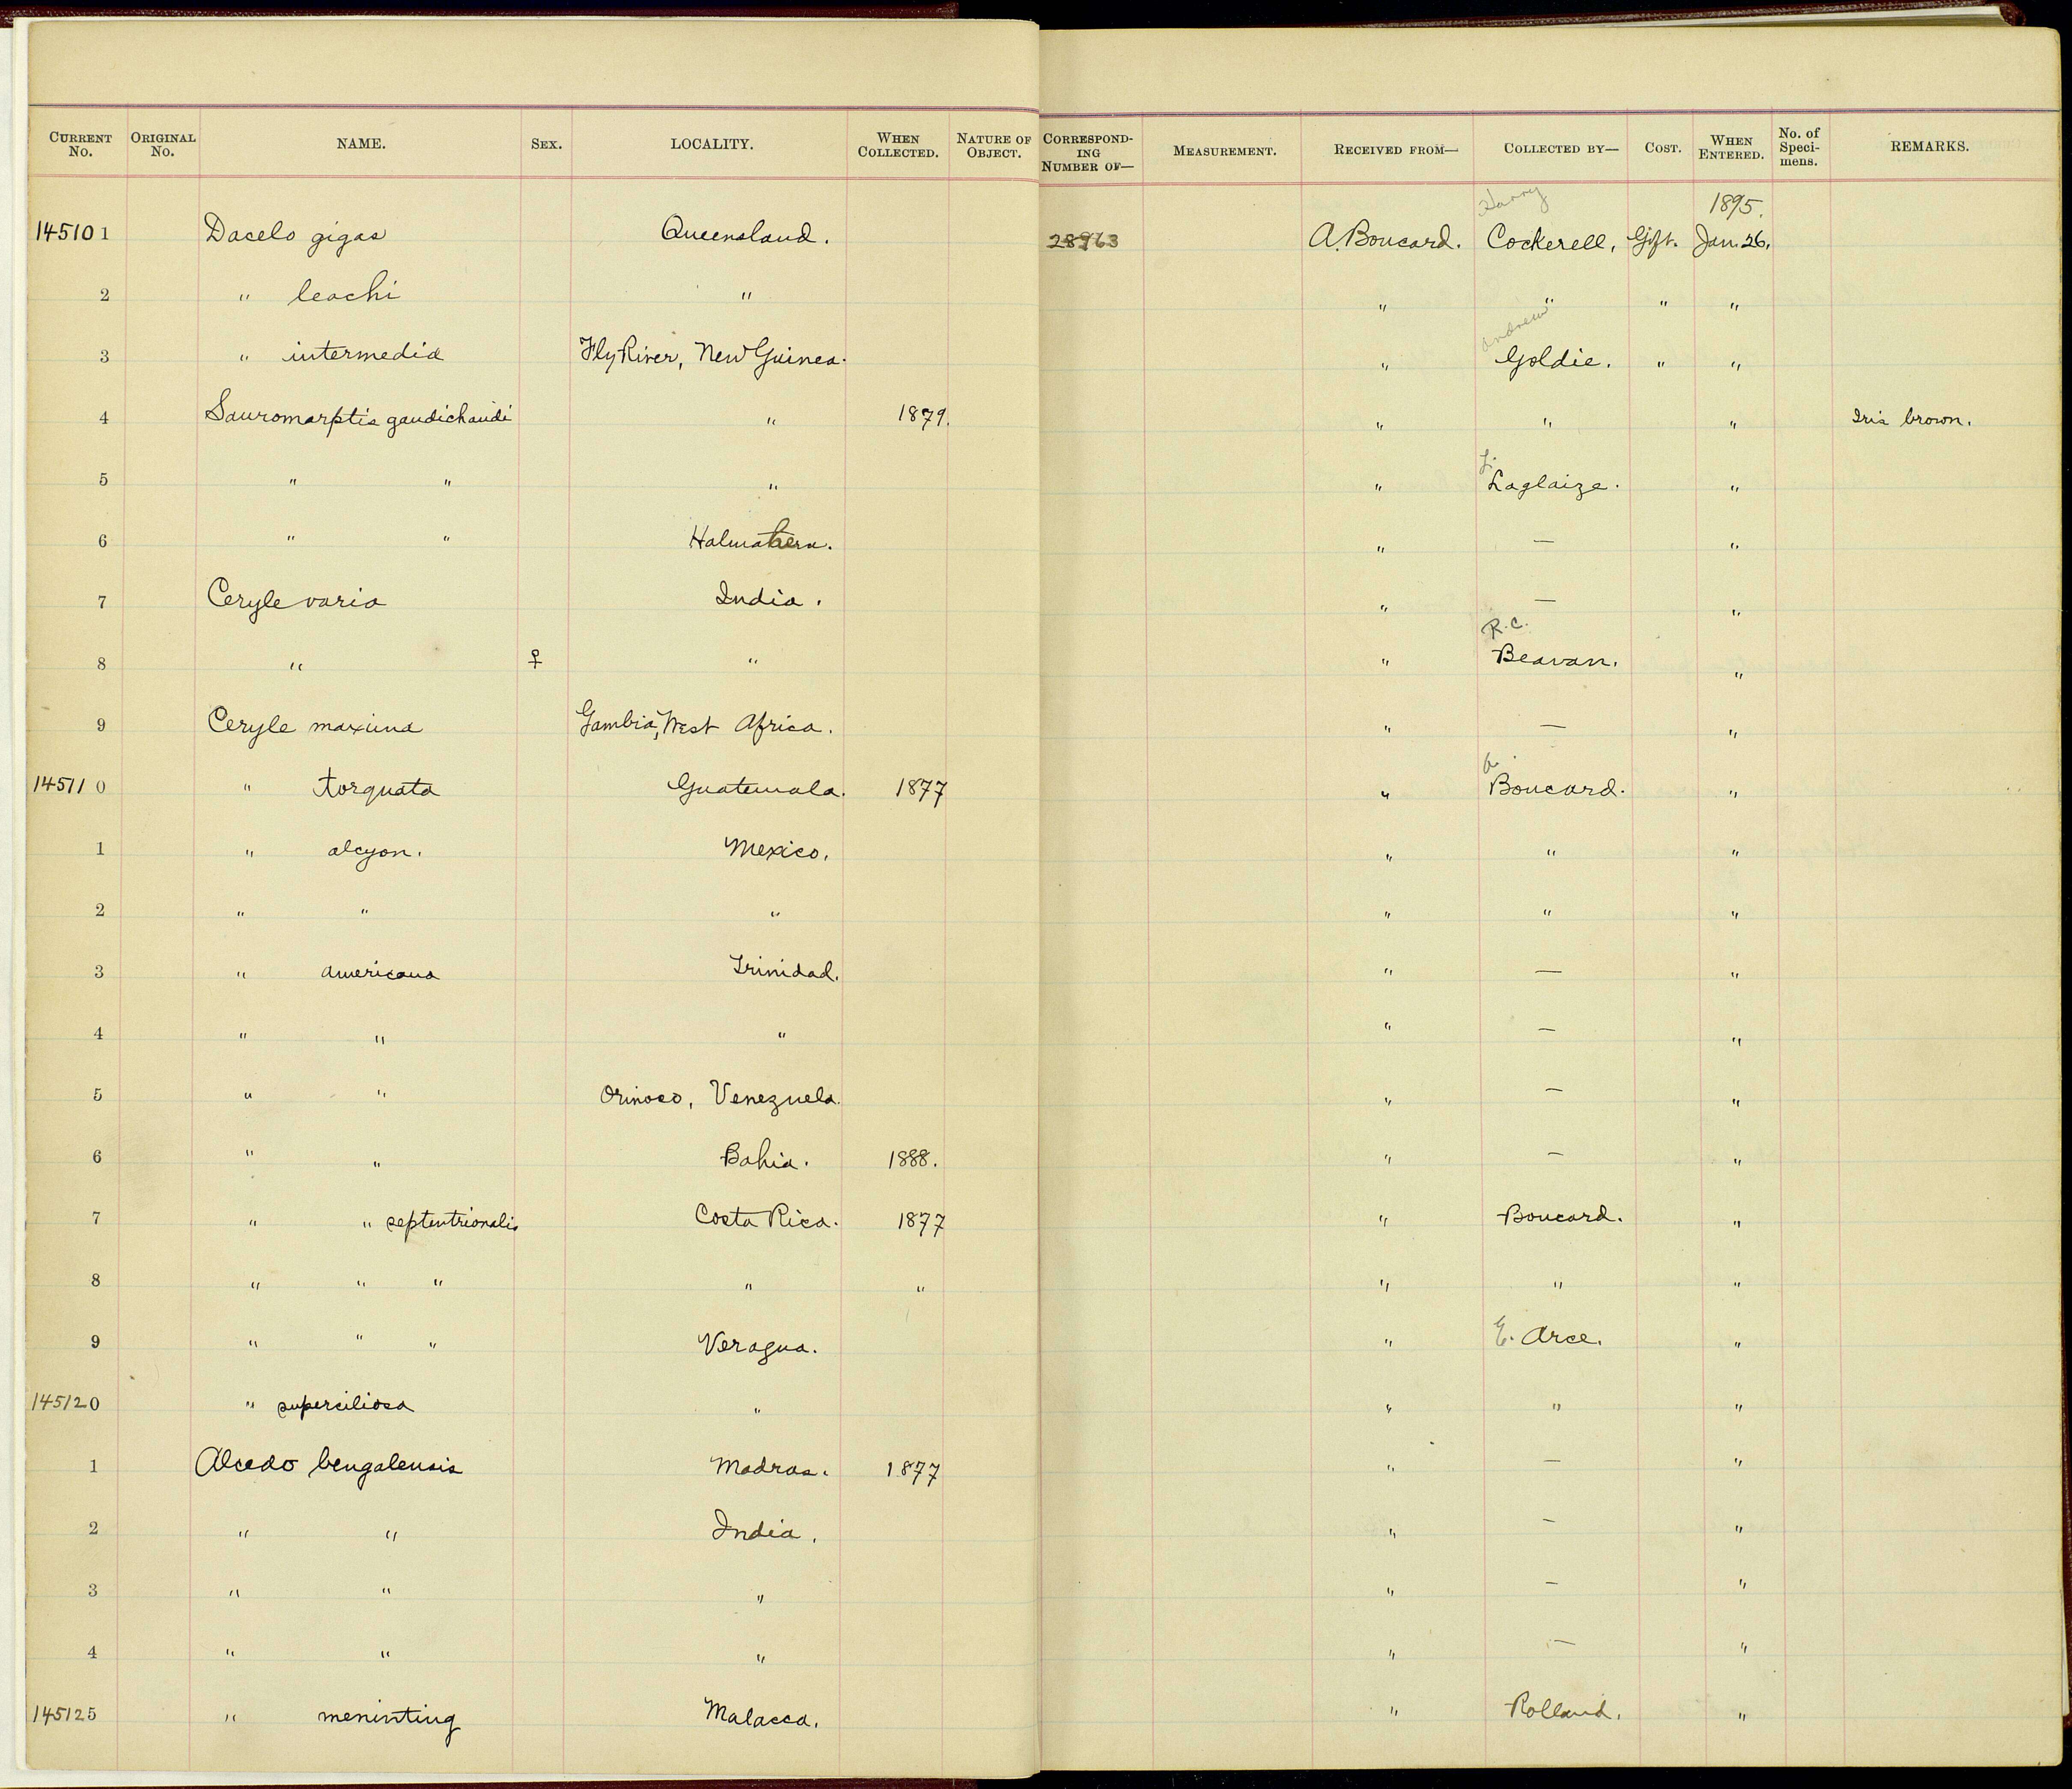 CURRENT No. ORIGINAL No. NAME. SEX. LOCALITY. WHEN COLLECTED. NATURE OF OBJECT. CORRESPONDING NUMBER OF— MEASUREMENT. RECEIVED FROM— COLLECTED BY— COST. WHEN ENTERED. No. of Specimens. REMARKS.
Harry 1895.
145101 Dacelo gigas Queensland. 28963 A. Boucard. Cockerell. Gift. Jan. 26.
2 " leachi " " " " "
andrew
3 " intermedia Fly River, New Guinea. " Goldie. " "
4 Sauromarptis gaudichaudi " 1879. " " " Iris brown.
5 " " " " L. Laglaize. "
6 " " Halmahera. " — "
7 Ceryle varia India. " — "
R. C.
8 " ♀ " " Beavan. "
9 Ceryle maxima Gambia, West Africa. " — "
a.
145110 " torquata Guatemala. 1877 " Boucard. "
1 " alcyon. Mexico. " " "
2 " " " " " "
3 " americana Trinidad. " — "
4 " " " " — "
5 " " Orinoco, Venezuela. " — "
6 " " Bahia. 1888. " — "
7 " " septentrionalis Costa Rica. 1877 " Boucard. "
8 " " " " " " " "
9 " " " Veragua. " E. Arce. "
145120 " superciliosa " " " "
1 Alcedo bengalensis Madras. 1877 " — "
2 " " India. " — "
3 " " " " — "
4 " " " " — "
145125 " meninting Malacca. " Rolland. "